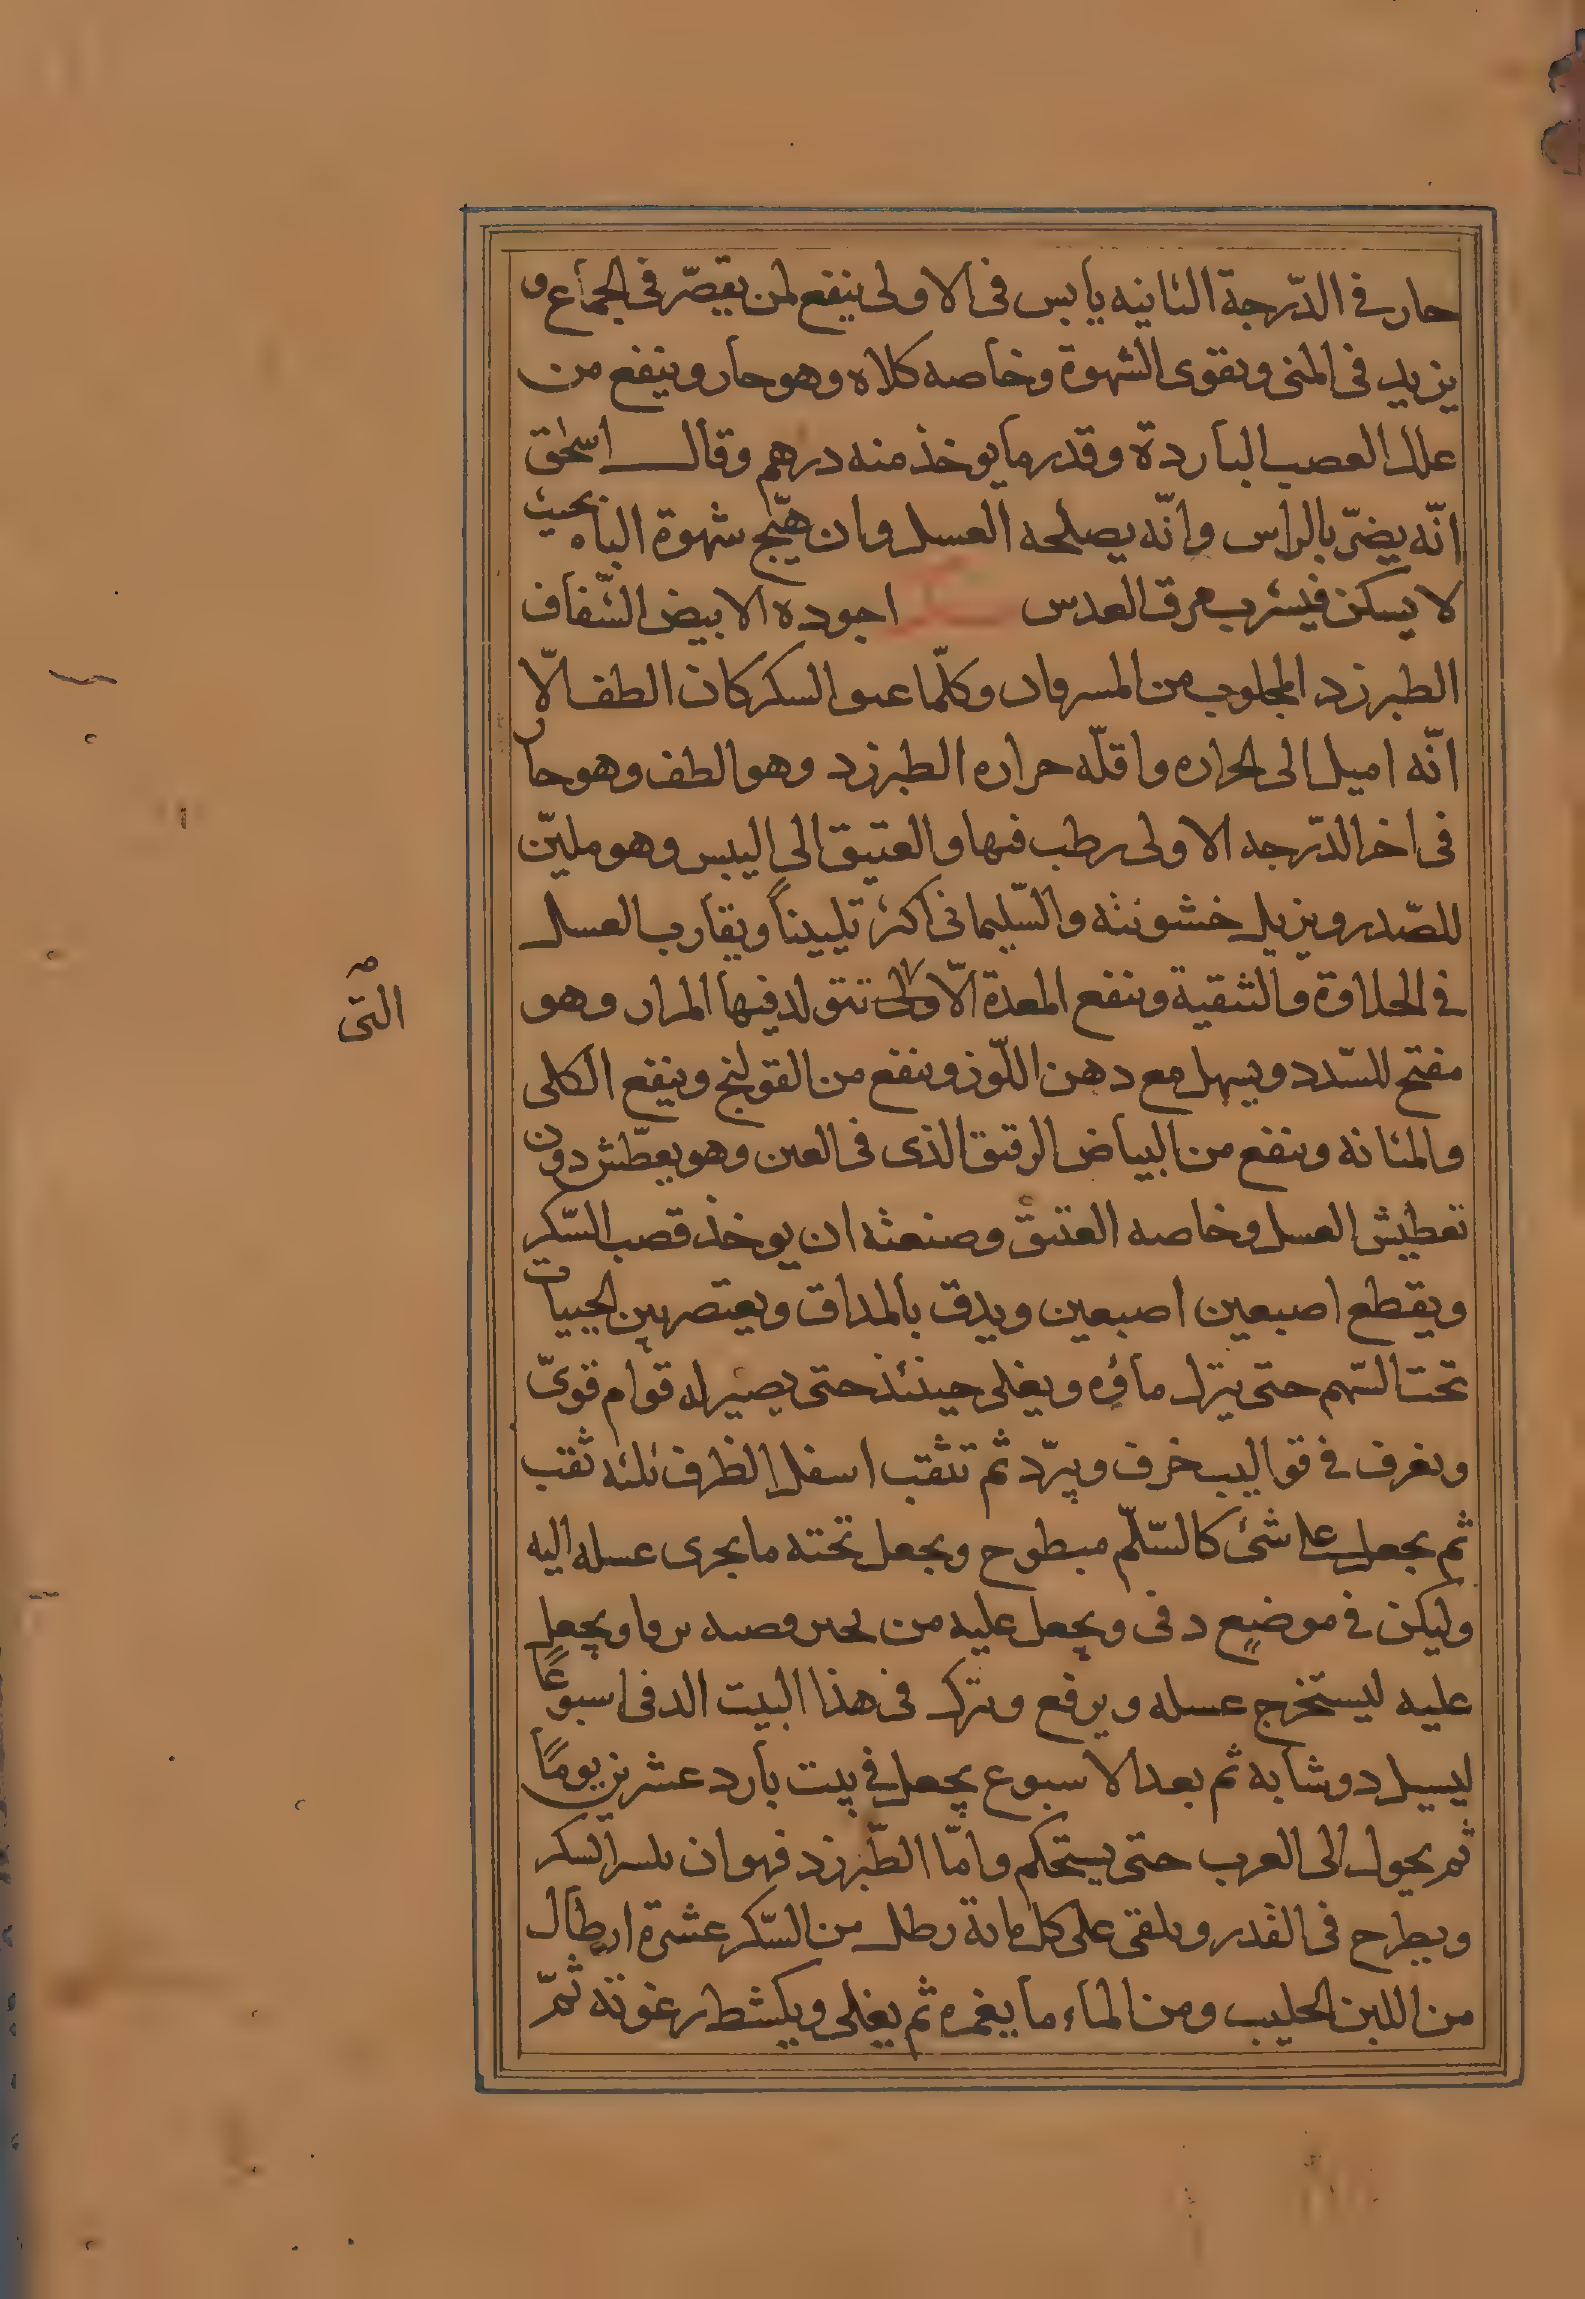 حار في الدّرجة الثانيه يابس في الاولى ينفع لمن يقصّر في الجماع و
يزيد في المنى ويقوى الشهوة وخاصه كلاه وهو حار وينفع من
علل العصب الباردة وقدر ما يوخذ منه درهم وقال اسحٰق
انّه يضرّ بالراس وانّه يصلحه العسل وان هيّج شهوة الباه بحيث
لا يسكن فيشرب مرق العدس سكر اجوده الابيض الشّفاف
الطبرزد المجلوب من وكلّما عتق السكر كان الطف الّا
انّه اميل الى الحراره واقلّه حراره الطبرزد وهو الطف وهو حار
في اخر الدّرجه الاولى رطب فيها والعتيق الى اليبس وهو مليّن
للصّدر ويزيل خشونته والسّليماني اكثر تلييناً ويقارب العسل
في الحلاوة والتنقية وينفع المعدة الّا ولى تتولد فيها المرار وهو
التى
مفتح للسّدد ويسهل مع دهن اللّوز وينفع من القولنج وينفع الكلى
والمثانه وينفع من البياض الرقيق الذى في العين وهو يعطّش دون
تعطيش العسل وخاصه العتيق وصنعته ان يوخذ قصب السّكر
ويقطع اصبعين اصبعين ويدق بالمداق ويعتصر بين
تحت السّهم حتى ينزل ماؤه ويغلى حينئذ حتى يصير له قوام قوىّ
ويغرف في قواليب خزف ويبرّد ثم تثقب اسفل الظرف ثلثه ثقب
ثم يجعل على شئ كالسّلّم مبطوح ويجعل تحته ما يجرى عسله اليه
وليكن في موضع دفى ويجعل عليه من ويجعل
عليه ليستخرج عسله ويرفع ويترك في هذا البيت الدفى اسبوعاً
ليسيل دوشابه ثم بعد الاسبوع يجعل في بيت بارد عشرين يوماً
ثم يحول الى حتى يستحكم وامّا الطّبرزد فهو ان السكر
ويطرح في القدر ويلقى على كل ماية رطل من السّكر عشرة ارطال
من اللبن الحليب ومن الماء ما يغمره ثم يغلى ويكشط رغوته ثمّ